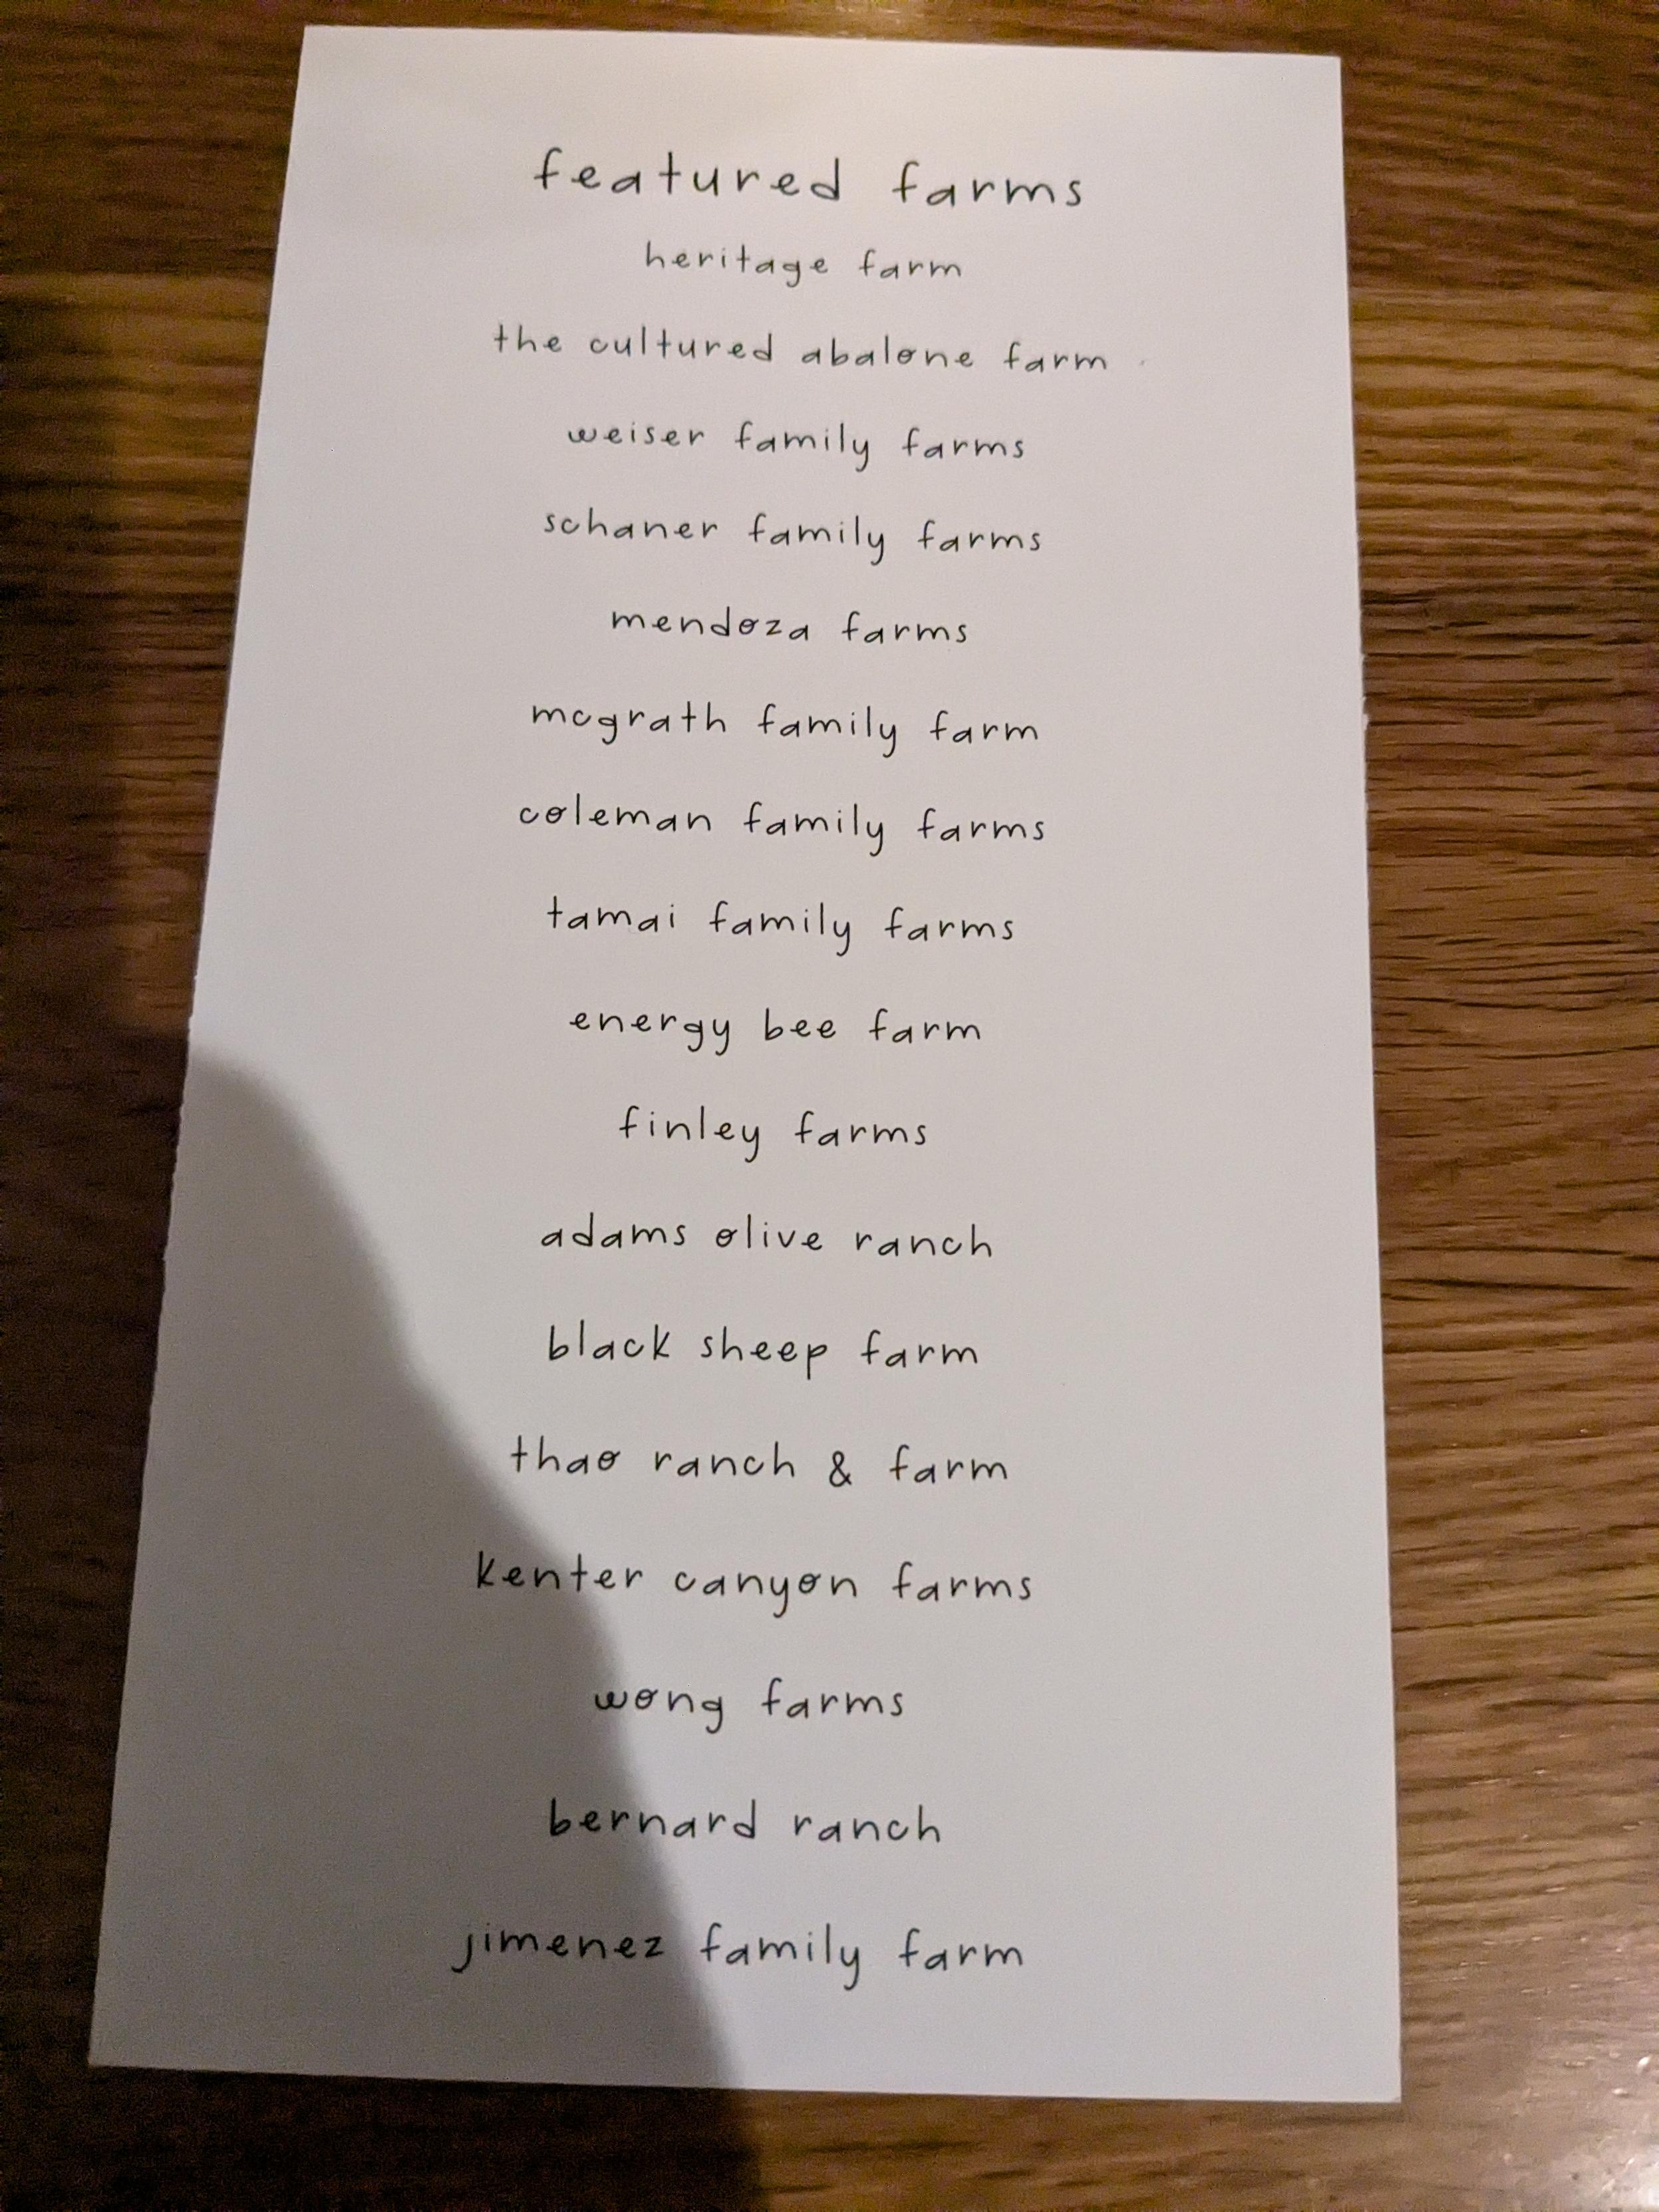 featured farms
heritage farm
the cultured abalone farm
weiser family farms
schaner family farms
mendoza farms
mcgrath family farm
coleman family farms
tamai family farms
energy bee farm
finley farms
adams olive ranch
black sheep farm
thao ranch & farm
kenter canyon farms
wong farms
bernard ranch
jimenez family farm